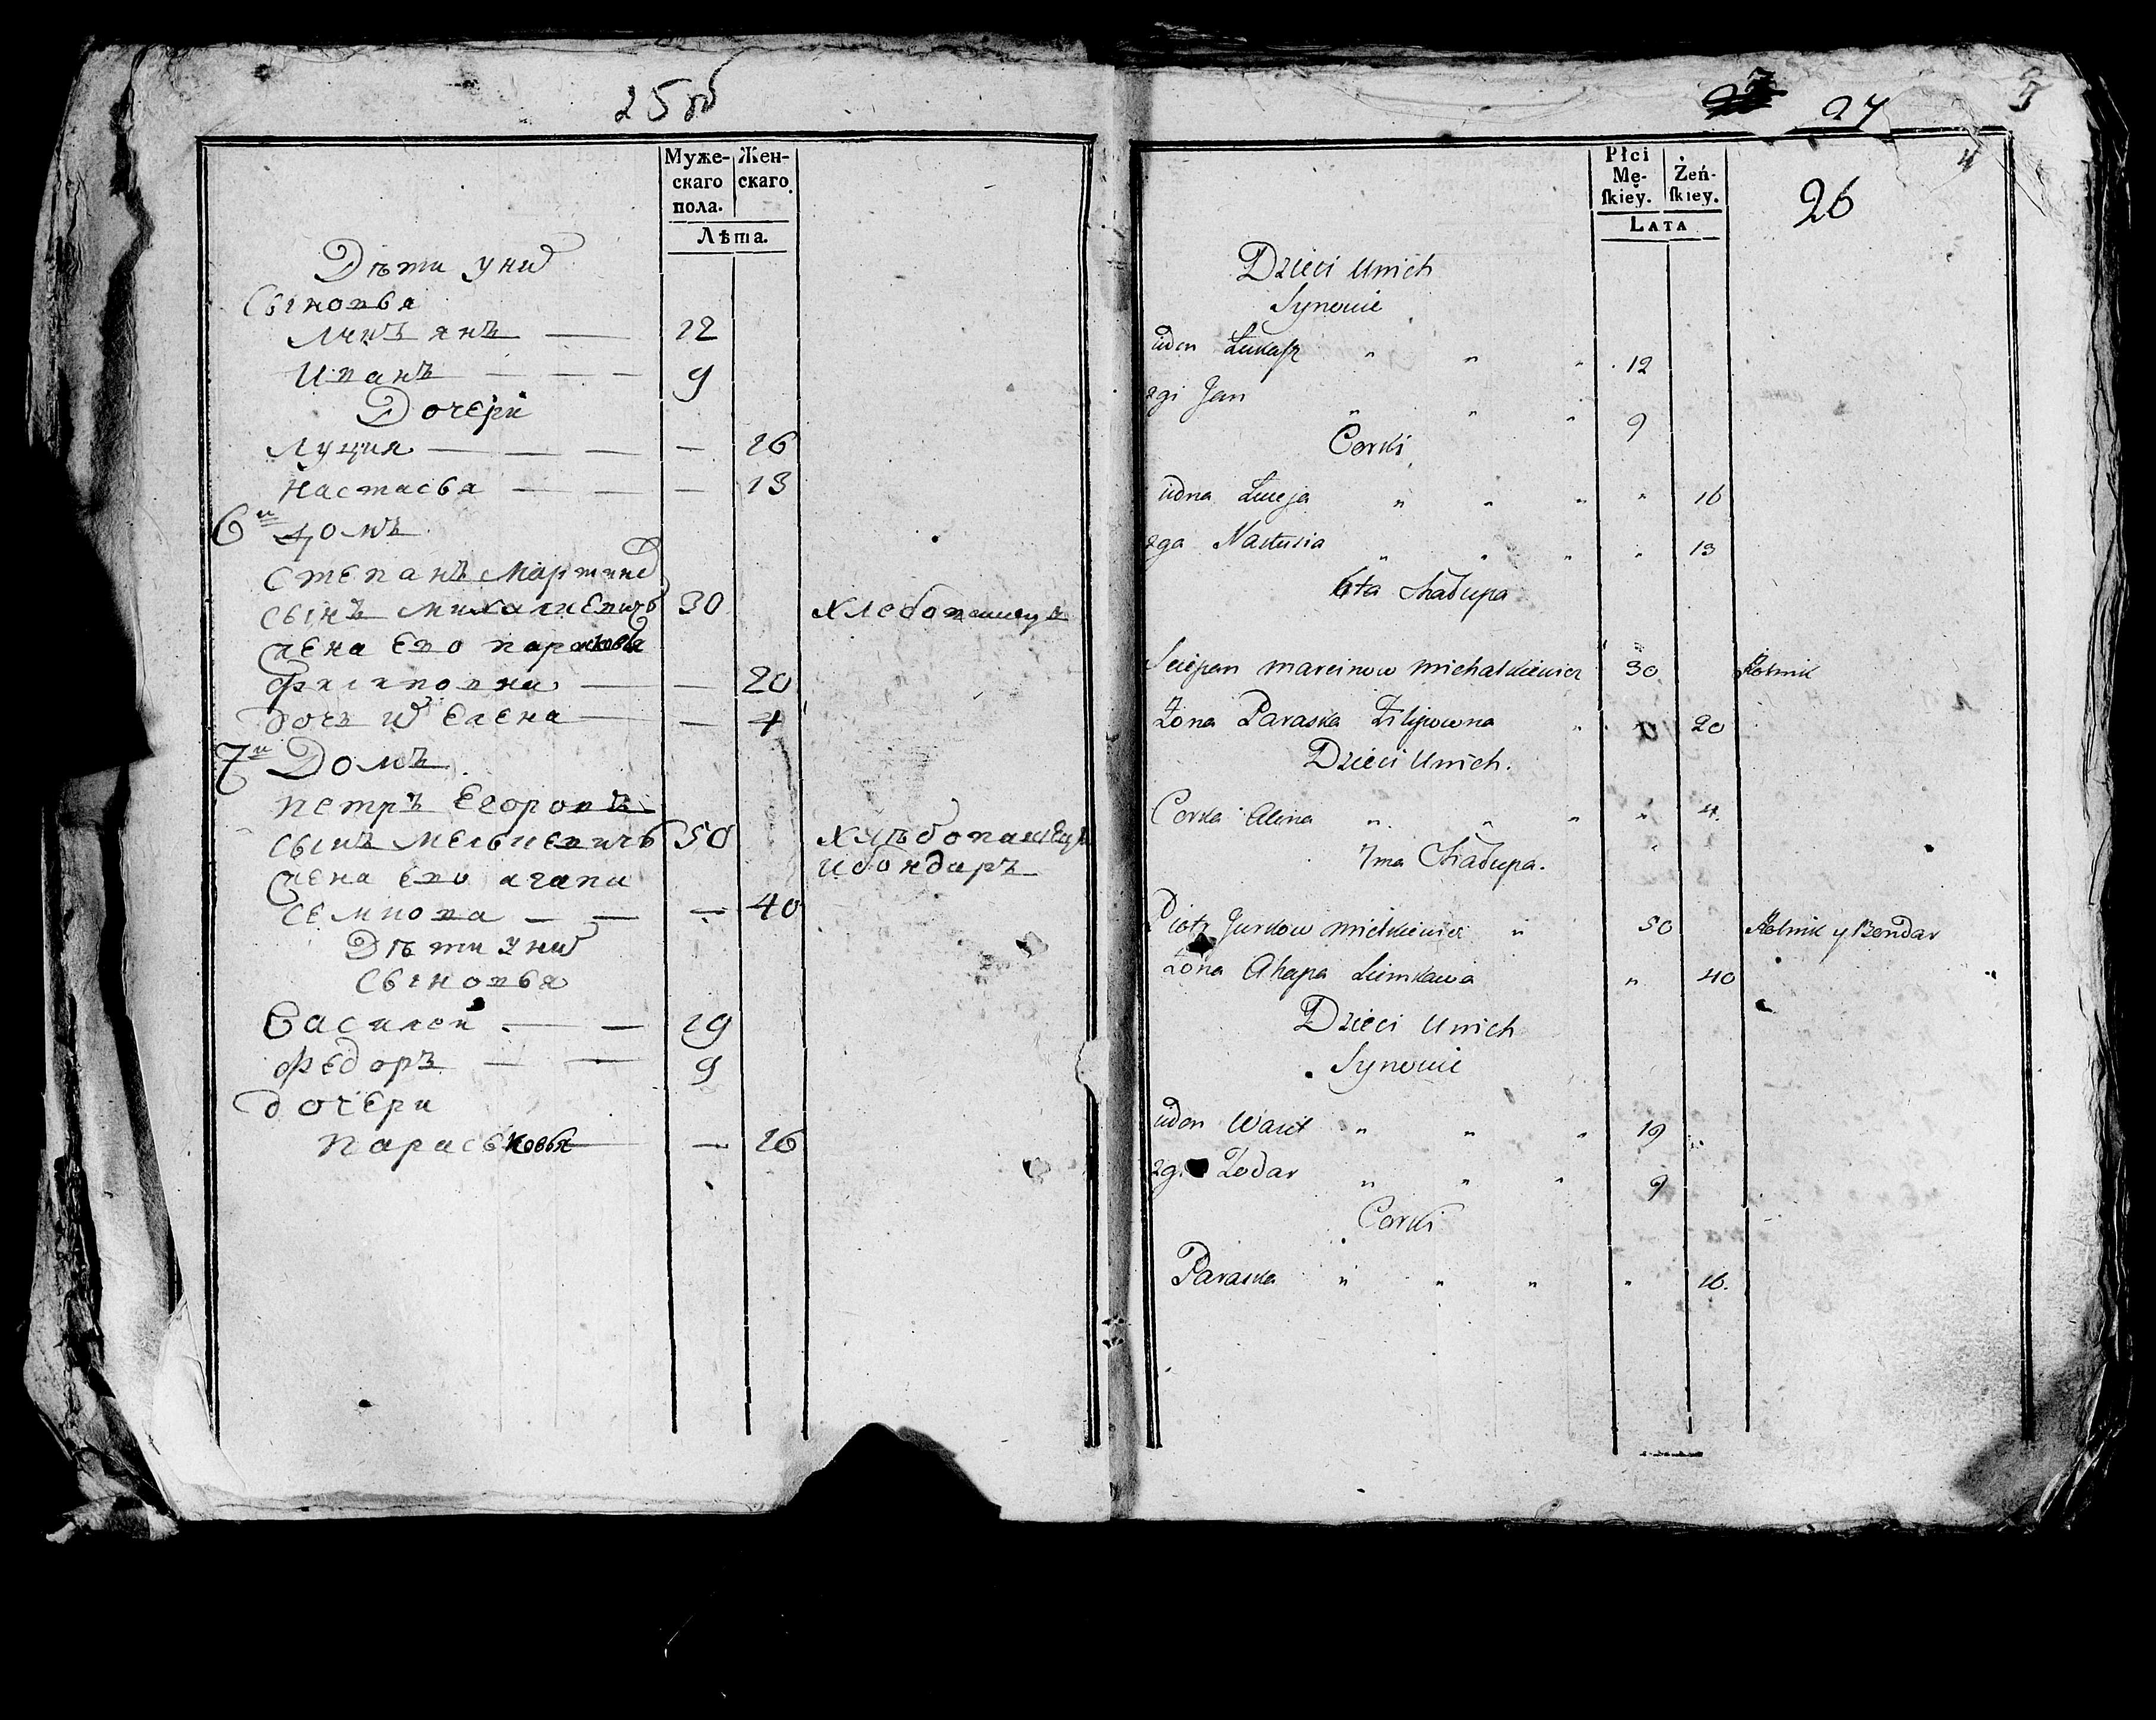 25 об
Муже-
скаго
пола.
Жен-
скаго.
Лѣта.
Дѣти у них
Сыновья
12
Иванъ 9
Дочери
Луция — 16
Настасья — 13
6й домъ
Степанъ Мартинов
сынъ Михалкевичь 30 хлебопашецъ
жена ево парасковья
Филиповна — 20
дочь их Елена — 4
7й Домъ
петръ Егоровъ
сынъ 50 хлѣбопашецъ
жена ево агапа и бондаръ
— 40
Дѣти у них
Сыновья
Василей 19
Федоръ 9
дочери
параськовья — 16
27 3
4
Płci
Mę-
ſkiey.
Żeń-
ſkiey.
LATA
26
Dzieci Unich
Synowie
ieden Łukaſz " " " 12
2gi Jan " " " 9
Corki
iedna Łucja " " " " 16
2ga Nastusia " " " " 13
6ta Chałupa
Sciepan Marcinow Michalkiewicz 30 Rolnik
Żona Paraska Filipowna " 20
Dzieci Unich.
Corka Alina " " " " 4.
7ma Chałupa.
Piotr Jurkow Mielkiewicz " 50 Rolnik y Bondar
Żona Ahapa " 40
Dzieci Unich
Synowie
ieden Wasil " " " 19
2gi Fodar " " " 9
Corki
Paraska " " " " 16.